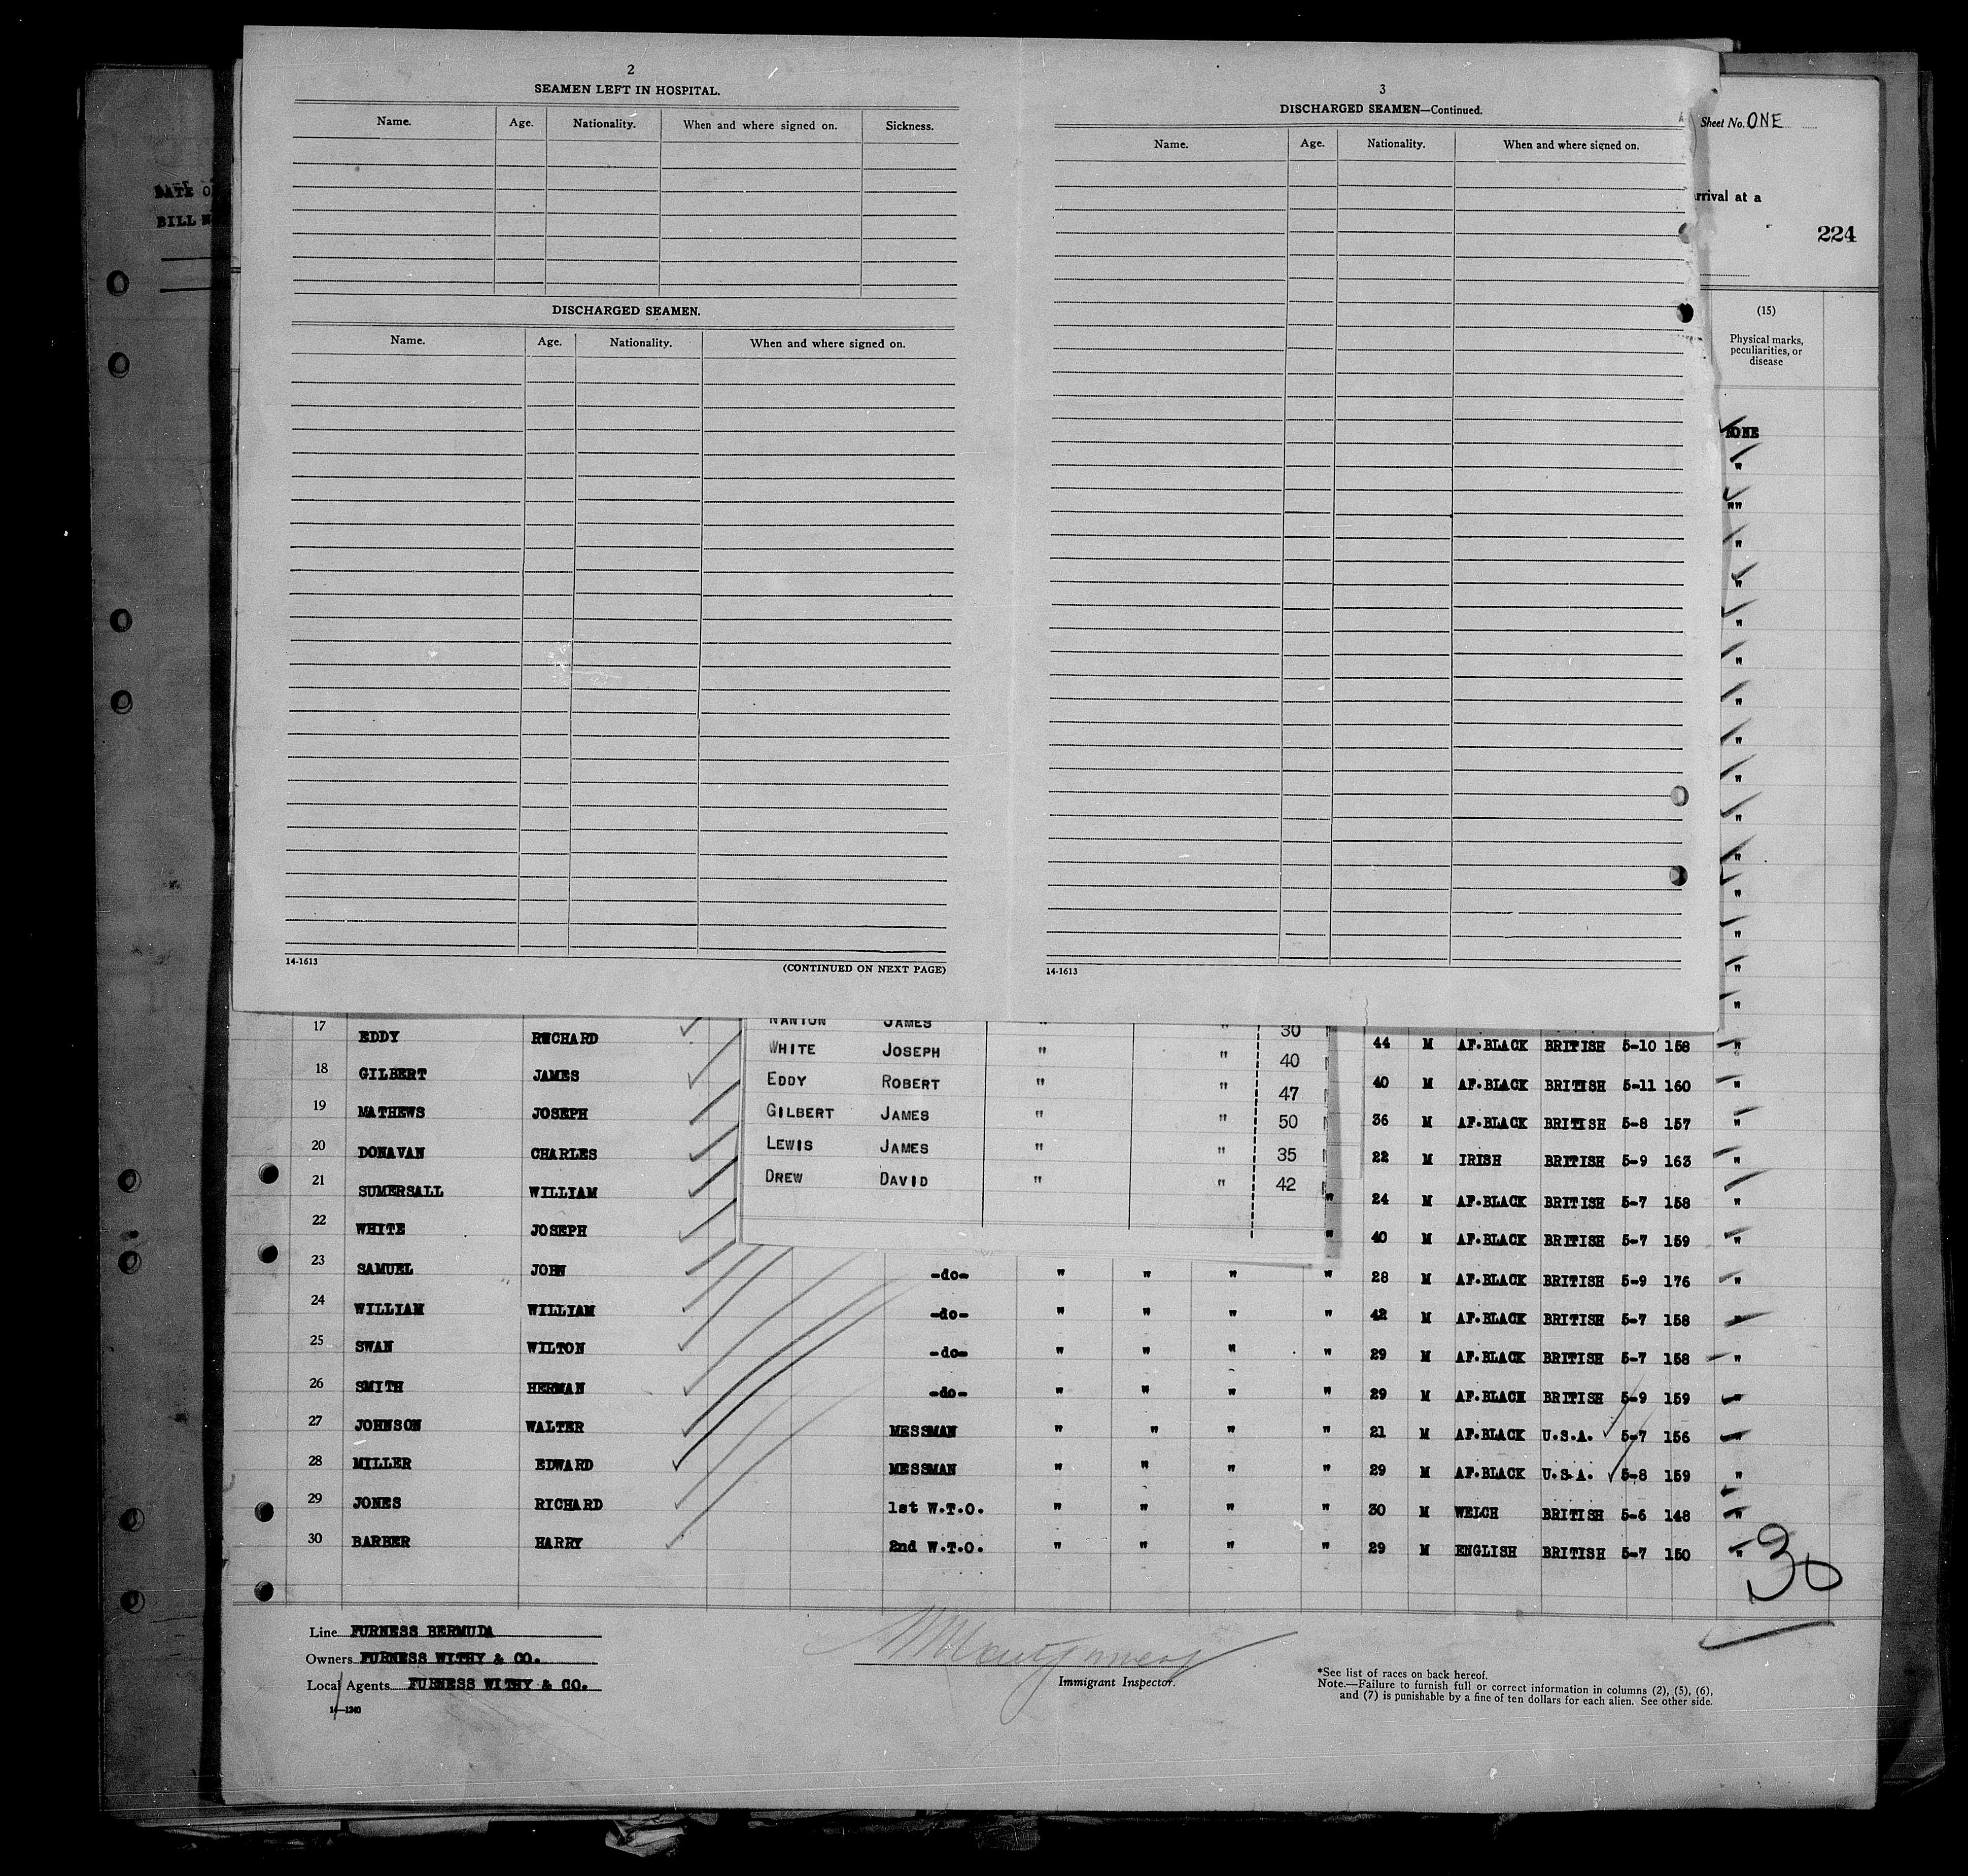 2
SEAMEN LEFT IN HOSPITAL.
Name. Age. Nationality. When and where signed on. Sickness.
DISCHARGED SEAMEN.
Name. Age. Nationality. When and where signed on.
14-1613 (CONTINUED ON NEXT PAGE)
3
DISCHARGED SEAMEN—Continued.
Name. Age. Nationality. When and where signed on.
14-1613
DATE O
BILL N
Sheet No. ONE
rrival at a
224
(15)
Physical marks,
peculiarities, or
disease
NONE
"
""
"
"
"
"
"
"
"
"
"
"
"
"
"
NANTON JAMES " " 30
WHITE JOSEPH " " 40
EDDY ROBERT " " 47
GILBERT JAMES " " 50
LEWIS JAMES " " 35
DREW DAVID " " 42
17 EDDY RWCHARD 44 M AF.BLACK BRITISH 5-10 158 "
18 GILBERT JAMES 40 M AF.BLACK BRITISH 5-11 160 "
19 MATHEWS JOSEPH 36 M AF.BLACK BRITISH 5-8 157 "
20 DONAVAN CHARLES 22 M IRISH BRITISH 5-9 163 "
21 SUMERSALL WILLIAM " 24 M AF.BLACK BRITISH 5-7 158 "
22 WHITE JOSEPH " 40 M AF.BLACK BRITISH 5-7 159 "
23 SAMUEL JOHN -do- " " " " 28 M AF.BLACK BRITISH 5-9 176 "
24 WILLIAM WILLIAM -do- " " " " 42 M AF.BLACK BRITISH 5-7 158 "
25 SWAN WILTON -do- " " " " 29 M AF.BLACK BRITISH 5-7 158 "
26 SMITH HERMAN -do- " " " " 29 M AF.BLACK BRITISH 5-9 159 "
27 JOHNSON WALTER MESSMAN " " " " 21 M AF.BLACK U.S.A. 5-7 156 "
28 MILLER EDWARD MESSMAN " " " " 29 M AF.BLACK U.S.A. 5-8 159 "
29 JONES RICHARD 1st W.T.O. " " " " 30 M WELCH BRITISH 5-6 148 "
30 BARBER HARRY 2nd W.T.O. " " " " 29 M ENGLISH BRITISH 5-7 150 "
30
Line FURNESS BERMUDA
Owners FURNESS WITHY & CO.
Local Agents FURNESS WITHY & CO.
14-1240
Immigrant Inspector.
*See list of races on back hereof.
Note.—Failure to furnish full or correct information in columns (2), (5), (6),
and (7) is punishable by a fine of ten dollars for each alien. See other side.